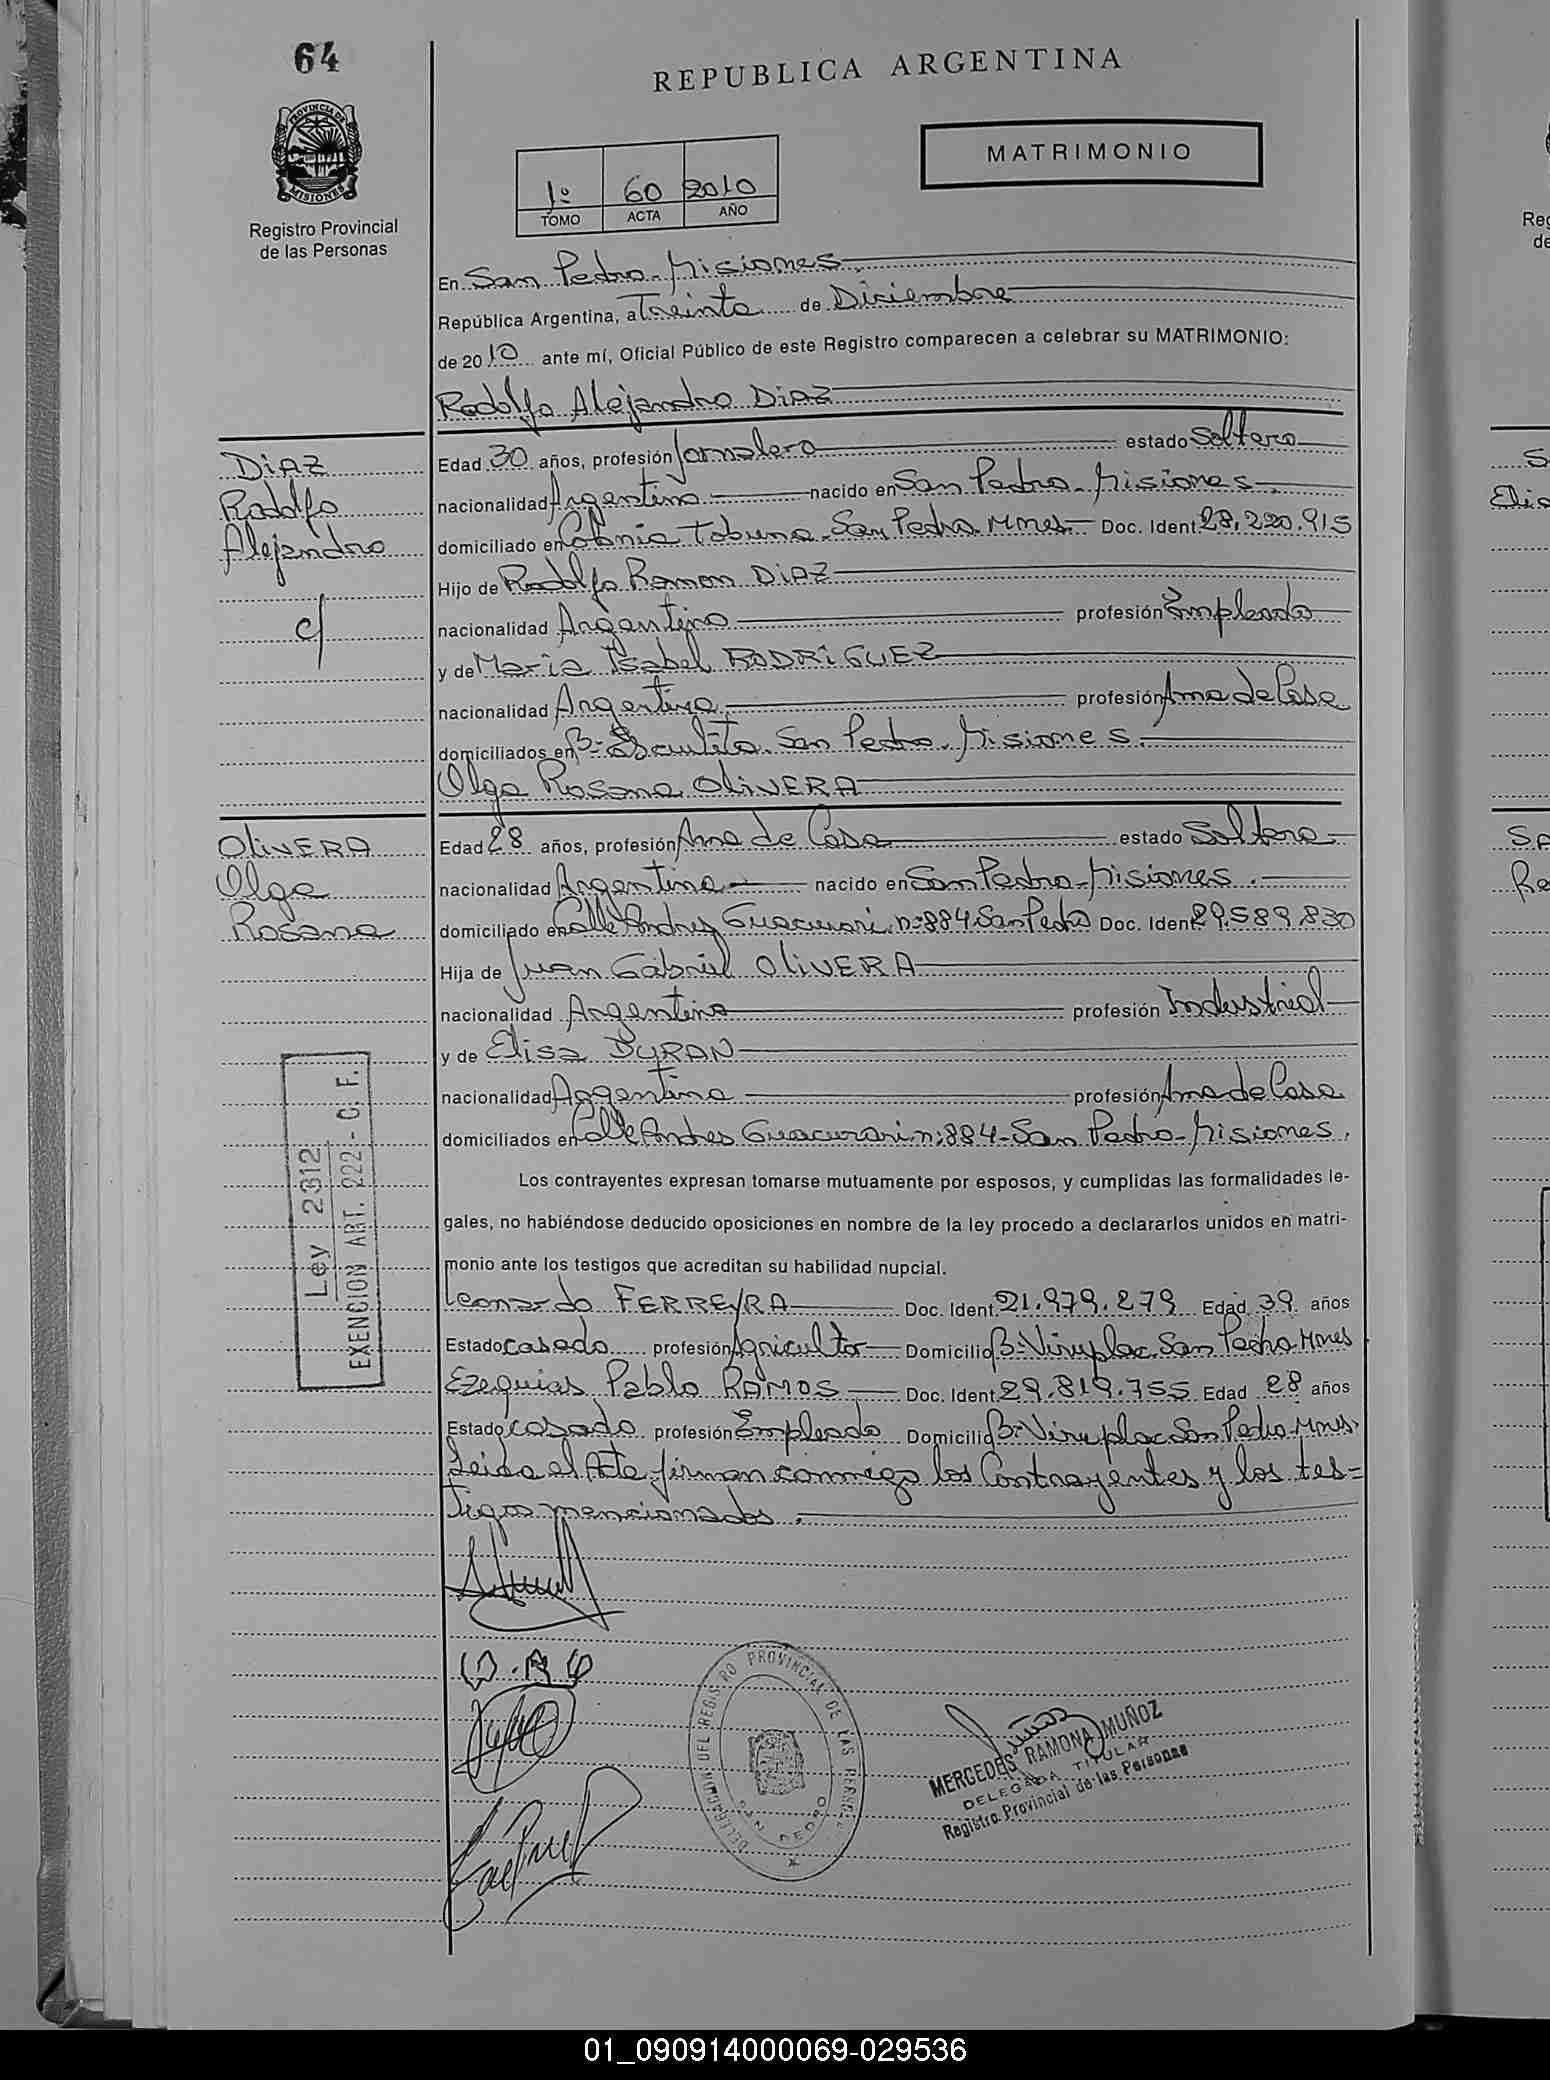 64
REPUBLICA ARGENTINA
PROVINCIA DE
MISIONES
Registro Provincial
de las Personas
MATRIMONIO
1º 60 2010
TOMO ACTA AÑO
En San Pedro - Misiones
República Argentina, a Treinta de Diciembre
de 2010 ante mí, Oficial Público de este Registro comparecen a celebrar su MATRIMONIO:
Rodolfo Alejandro DIAZ
DIAZ
Rodolfo
Alejandro
c/
Edad 30 años, profesión Jornalero estado Soltero
nacionalidad Argentino nacido en San Pedro - Misiones.
domiciliado en Colonia Tobuna - San Pedro Mnes. Doc. Ident. 28.220.915
Hijo de Rodolfo Ramon DIAZ
nacionalidad Argentino profesión Empleado
y de Maria Isabel RODRIGUEZ
nacionalidad Argentina profesión Ama de Casa
domiciliados en Bº Escuelita - San Pedro - Misiones.
Olga Rosana OLIVERA
OLIVERA
Olga
Rosana
Edad 28 años, profesión Ama de Casa estado Soltera
nacionalidad Argentina nacido en San Pedro - Misiones.
domiciliado en Calle Andres Guacurari nº 884 San Pedro Doc. Ident. 29.589.830
Hija de Juan Gabriel OLIVERA
nacionalidad Argentino profesión Industrial
y de Elisa DURAN
nacionalidad Argentina profesión Ama de Casa
domiciliados en Calle Andres Guacurari nº 884 - San Pedro - Misiones.
Ley 2312
EXENCION ART. 222 - C. F.
Los contrayentes expresan tomarse mutuamente por esposos, y cumplidas las formalidades le-
gales, no habiéndose deducido oposiciones en nombre de la ley procedo a declararlos unidos en matri-
monio ante los testigos que acreditan su habilidad nupcial.
Leonardo FERREYRA Doc. Ident. 21.979.279 Edad 39 años
Estado casado profesión Agricultor Domicilio Bº Viruplac San Pedro Mnes
Ezequias Pablo RAMOS Doc. Ident. 29.819.755 Edad 28 años
Estado casado profesión Empleado Domicilio Bº Viruplac San Pedro Mnes.
Leida el Acta firman conmigo los Contrayentes y los tes=
tigos mencionados.
DELEGACION DEL REGISTRO PROVINCIAL DE LAS PERSONAS
SAN PEDRO
MERCEDES RAMONA MUÑOZ
DELEGADA TITULAR
Registro Provincial de las Personas
01_090914000069-029536